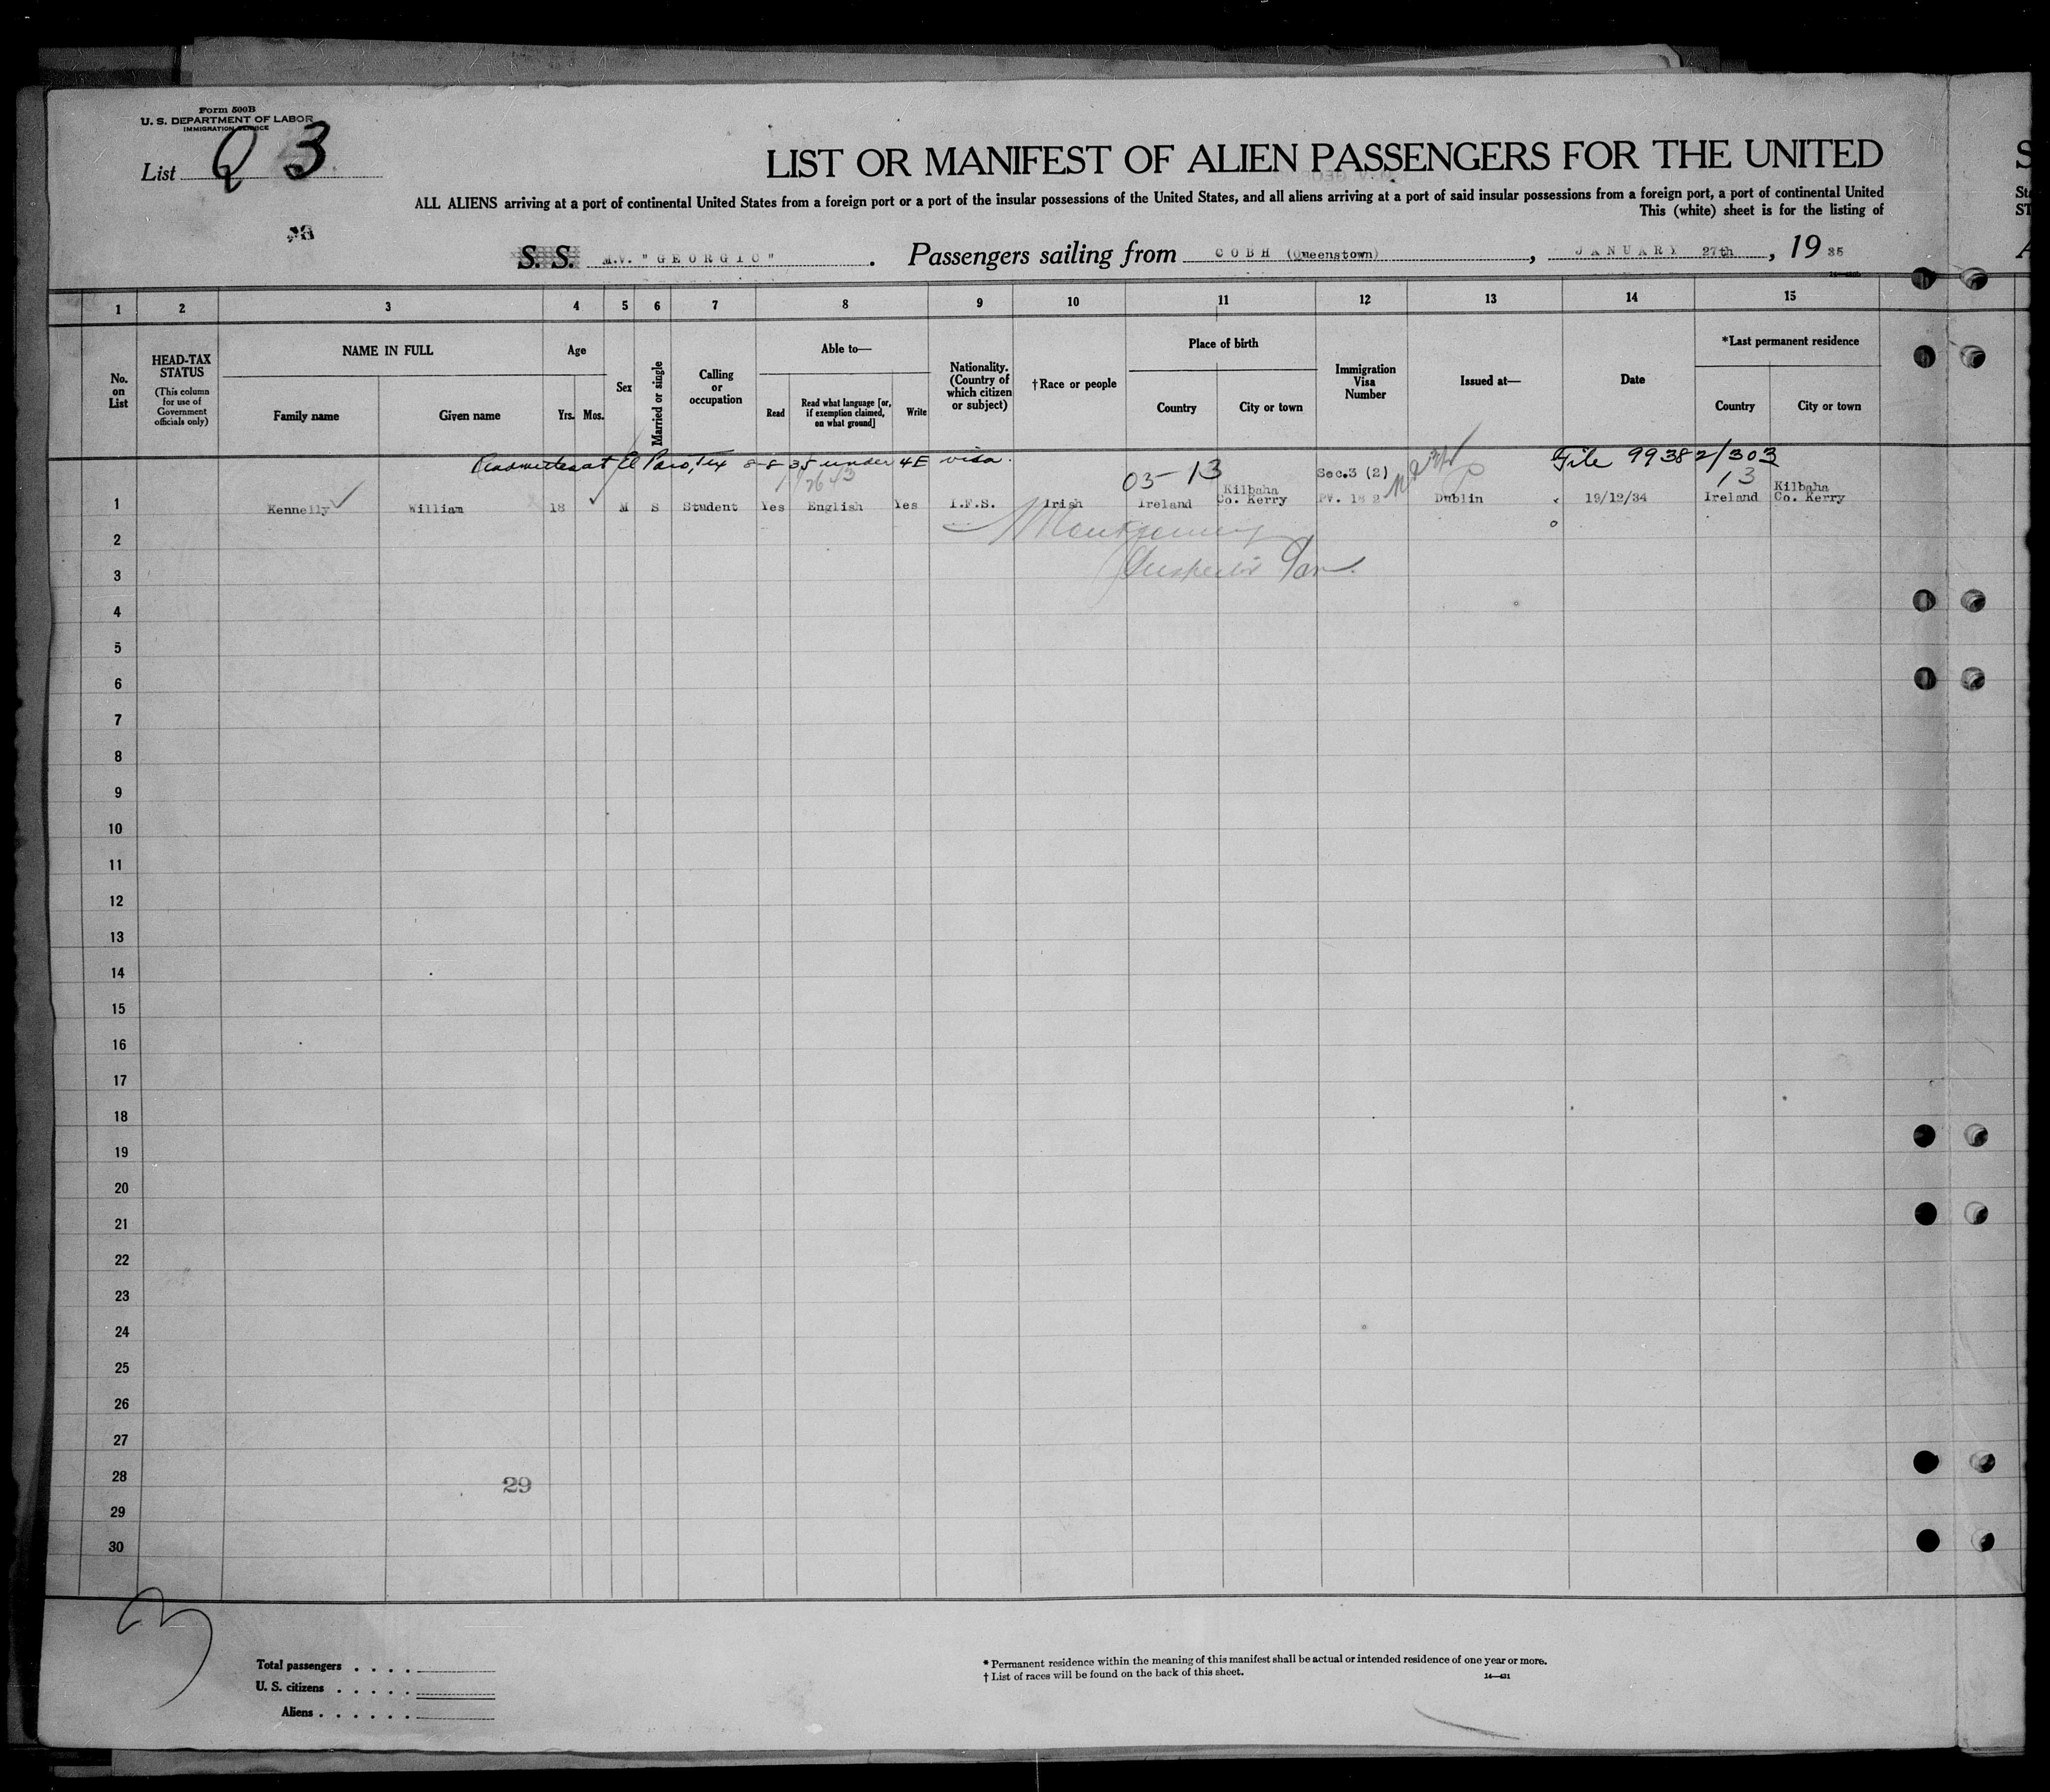 Form 500B
U. S. DEPARTMENT OF LABOR
IMMIGRATION SERVICE
List 3
LIST OR MANIFEST OF ALIEN PASSENGERS FOR THE UNITED
ALL ALIENS arriving at a port of continental United States from a foreign port or a port of the insular possessions of the United States, and all aliens arriving at a port of said insular possessions from a foreign port, a port of continental United
This (white) sheet is for the listing of
S. S. M.V. "GEORGIC". Passengers sailing from COBH (Queenstown), JANUARY 27th, 1935
1 2 3 4 5 6 7 8 9 10 11 12 13 14 15
No. on List
HEAD-TAX STATUS
(This column for use of Government officials only)
NAME IN FULL
Family name Given name
Age
Yrs. Mos.
Sex
Married or single
Calling or occupation
Able to—
Read
Read what language [or, if exemption claimed, on what ground]
Write
Nationality. (Country of which citizen or subject)
†Race or people
Place of birth
Country City or town
Immigration Visa Number
Issued at—
Date
*Last permanent residence
Country City or town
Readmitted at El Paso, Tex 8-8-35 under 4E visa. File 99382/303
03-13 13
1 Kennelly William 18 M S Student Yes English Yes I.F.S. Irish Ireland Kilbaha Co. Kerry Sec.3 (2) PV. 182 Dublin 19/12/34 Ireland Kilbaha Co. Kerry
2 Montgomery
3 Inspector
4
5
6
7
8
9
10
11
12
13
14
15
16
17
18
19
20
21
22
23
24
25
26
27
28
29
29
30
Total passengers . . . .
U. S. citizens . . . . .
Aliens . . . . . .
* Permanent residence within the meaning of this manifest shall be actual or intended residence of one year or more.
† List of races will be found on the back of this sheet.
14—431